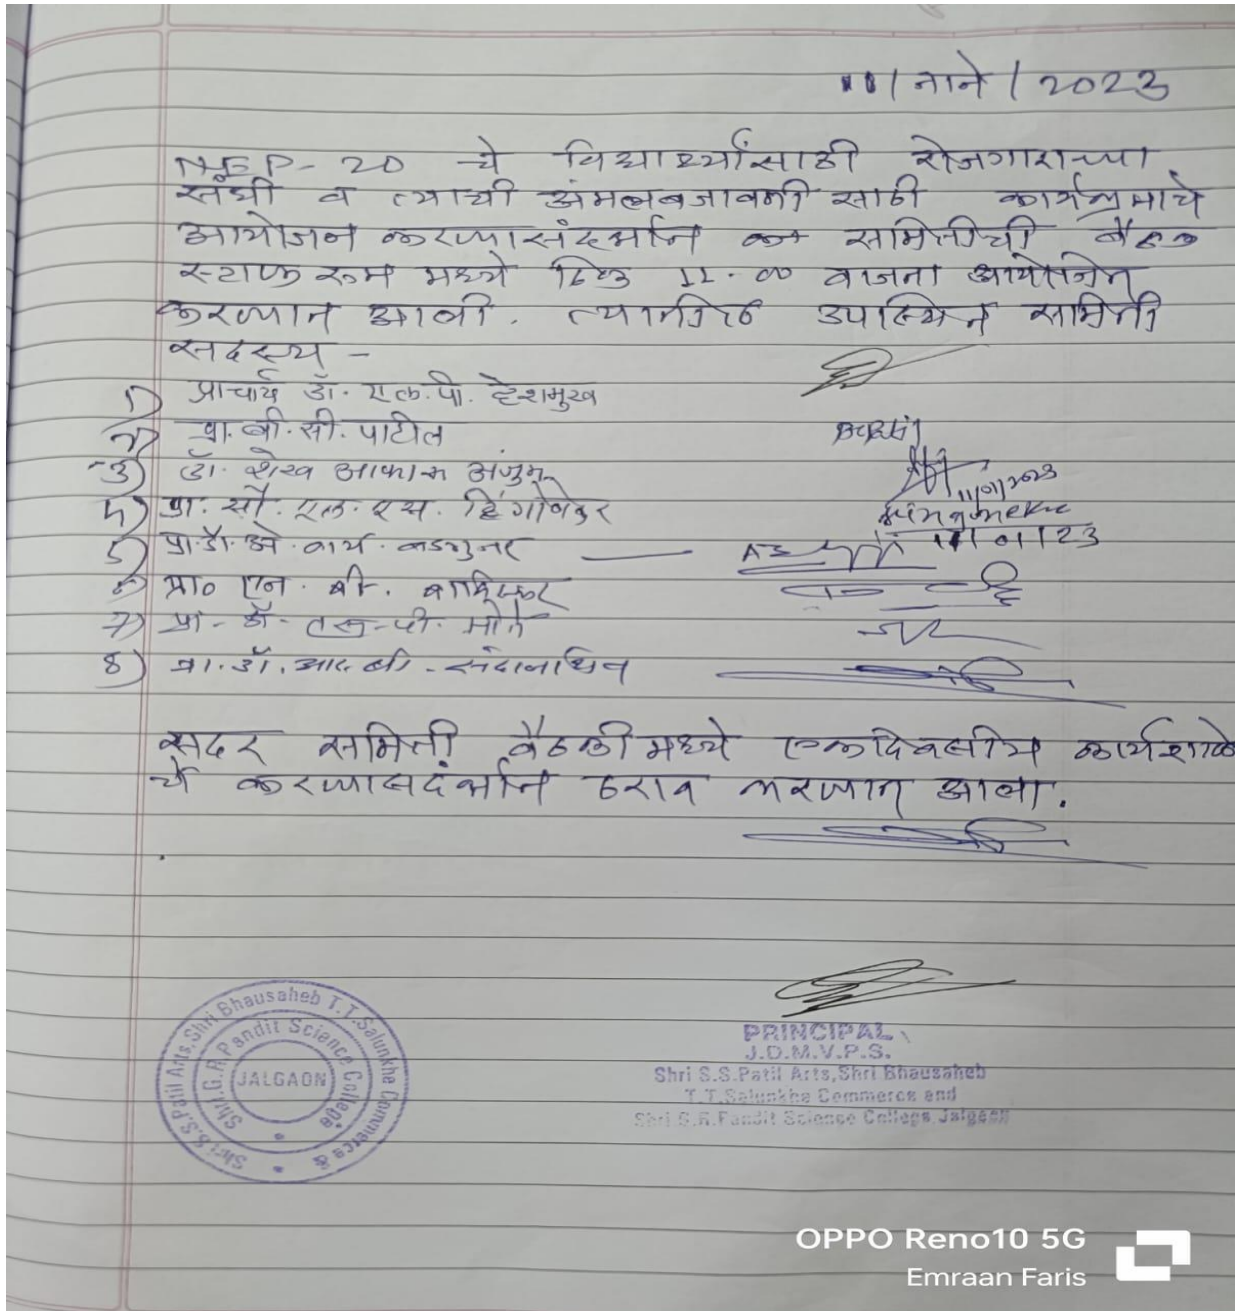 11/जाने/2023
NEP-20 चे विद्यार्थ्यांसाठी रोजगाराच्या
संधी व त्याची अंमलबजावणी साठी कार्यक्रमाचे
आयोजन करण्यासंदर्भात समितीची बैठक
स्टाफ रूम मध्ये ठिक 11.00 वाजता आयोजित
करण्यात आली. उपस्थित समिती
सदस्य -
1) प्राचार्य डॉ. एल.पी. देशमुख
2) प्रा. बी.सी. पाटील
3) डॉ. शेख आफाक अंजुम
11/01/2023
4) प्रा. सौ. एल. एस. हिंगोणेकर
11/01/23
5) प्रा.डॉ.ओ.वाय.
6) प्रा० एन. बी.
7) प्रा. डॉ. एस. पी.
8) प्रा.डॉ. आर. बी.
सदर समिती बैठकी मध्ये एकदिवसीय कार्यशाळे
चे करण्यासदंर्भात ठराव करण्यात आला.
Shri S.S.Patil Arts,Shri Bhausaheb T.T.Salunkhe Commerce &
Shri.G.R.Pandit Science College
JALGAON
PRINCIPAL
J.D.M.V.P.S.
Shri S.S.Patil Arts,Shri Bhausaheb
T.T.Salunkhe Commerce and
Shri G.R.Pandit Science College Jalgaon
OPPO Reno10 5G
Emraan Faris